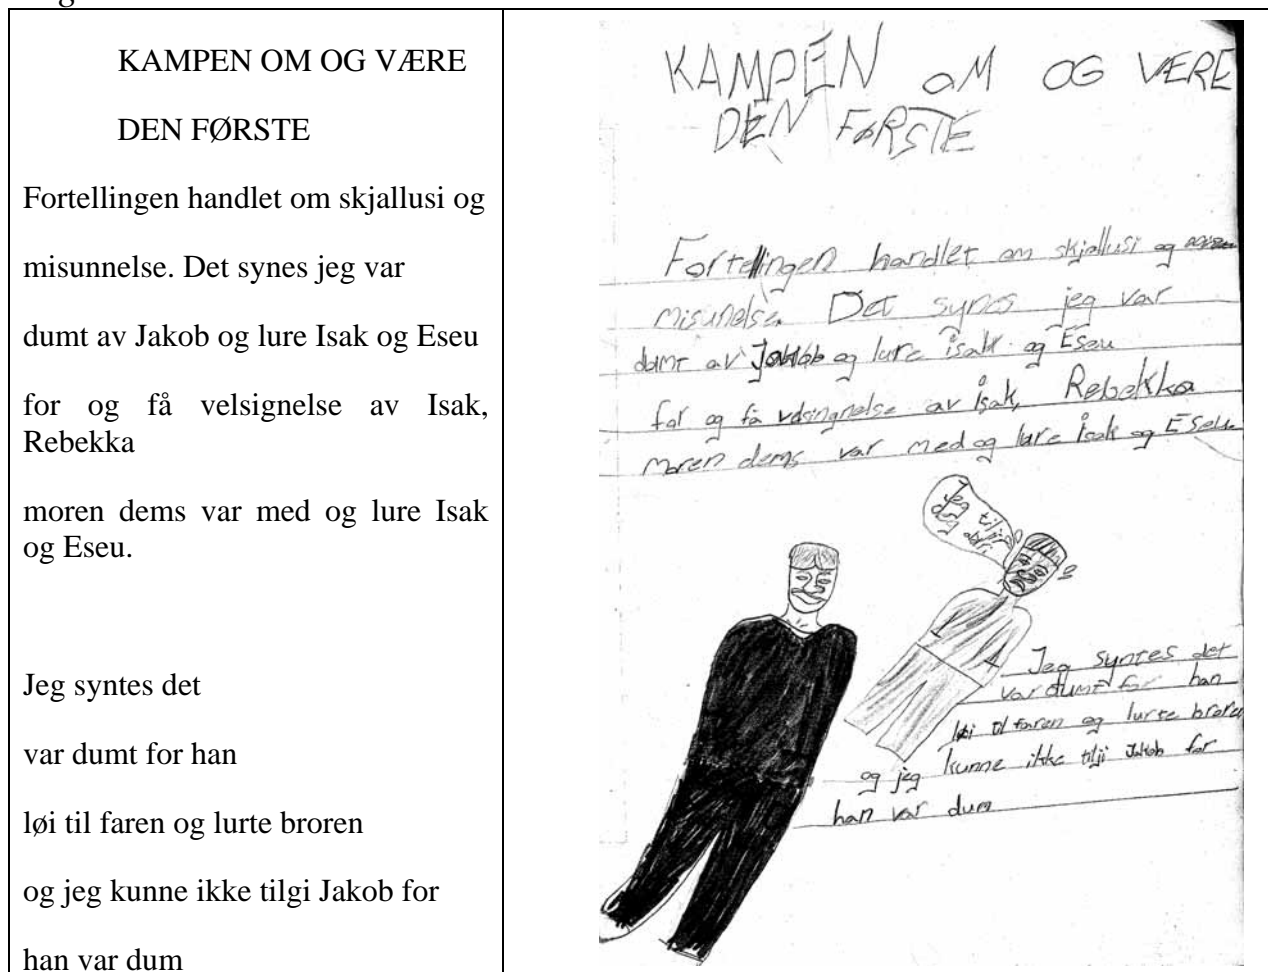 KAMPEN OM OG VÆRE
DEN FØRSTE
Fortellingen handlet om skjallusi og
misunnelse. Det synes jeg var
dumt av Jakob og lure Isak og Eseu
for og få velsignelse av Isak,
Rebekka
moren dems var med og lure Isak
og Eseu.
Jeg syntes det
var dumt for han
løi til faren og lurte broren
og jeg kunne ikke tilgi Jakob for
han var dum
KAMPEN OM OG VÆRE
DEN FØRSTE
Fortellingen handlet om skjallusi og
misunelse. Det synes jeg var
dumt av Jakob og lure isak og Eseu
for og få av isak, Rebekka
moren dems var med og lure isak og Eseu
Jeg tiljir
deg aldri
Jeg syntes det
var dumt for han
løi til faren og lurte broren
og jeg kunne ikke tilji Jakob for
han var dum